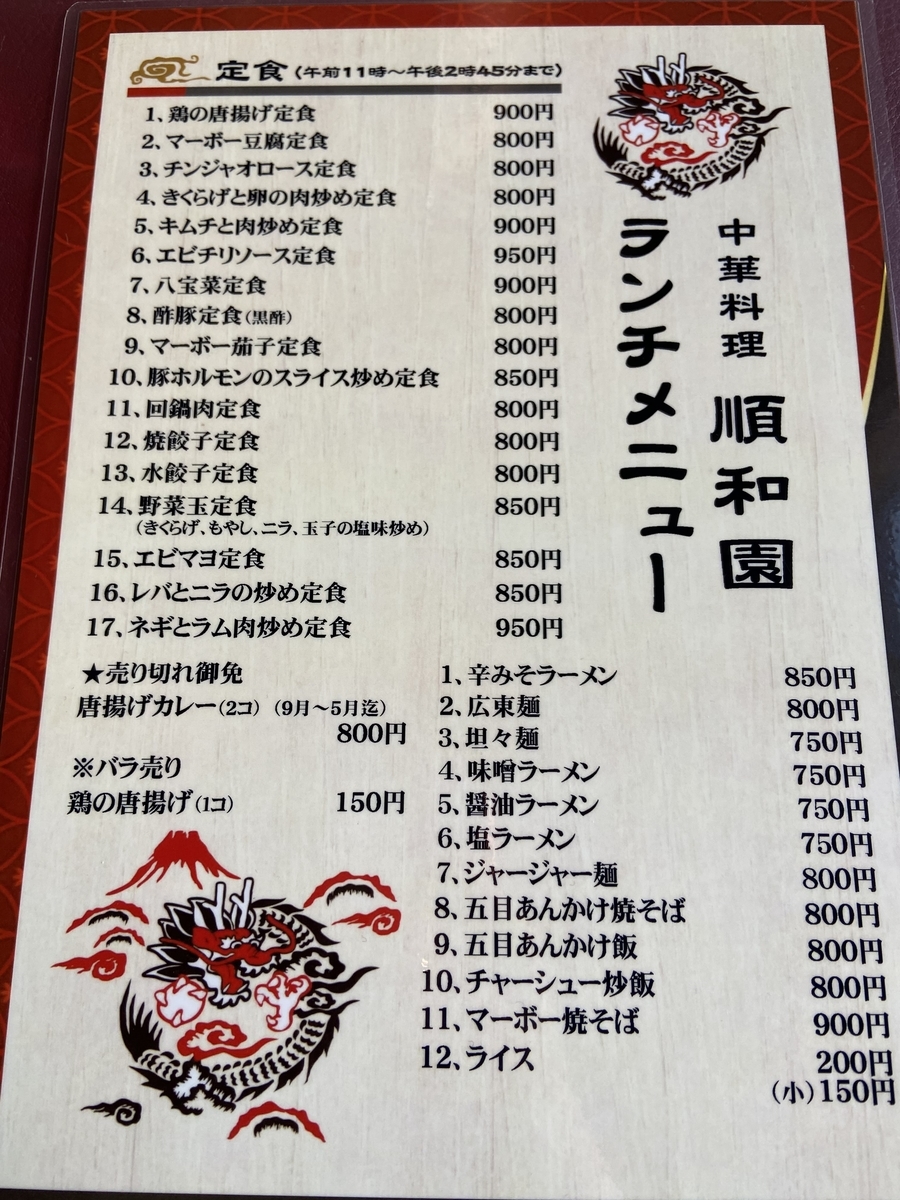 定食(午前11時～午後2時45分まで)
1、鶏の唐揚げ定食 900円
2、マーボー豆腐定食 800円
3、チンジャオロース定食 800円
4、きくらげと卵の肉炒め定食 800円
5、キムチと肉炒め定食 900円
6、エビチリソース定食 950円
7、八宝菜定食 900円
8、酢豚定食(黒酢) 800円
9、マーボー茄子定食 800円
10、豚ホルモンのスライス炒め定食 850円
11、回鍋肉定食 800円
12、焼餃子定食 800円
13、水餃子定食 800円
14、野菜玉定食 850円
(きくらげ、もやし、ニラ、玉子の塩味炒め)
15、エビマヨ定食 850円
16、レバとニラの炒め定食 850円
17、ネギとラム肉炒め定食 950円
中華料理 順和園
ランチメニュー
★売り切れ御免
唐揚げカレー(2コ) (9月～5月迄)
800円
※バラ売り
鶏の唐揚げ(1コ) 150円
1、辛みそラーメン 850円
2、広東麺 800円
3、坦々麺 750円
4、味噌ラーメン 750円
5、醤油ラーメン 750円
6、塩ラーメン 750円
7、ジャージャー麺 800円
8、五目あんかけ焼そば 800円
9、五目あんかけ飯 800円
10、チャーシュー炒飯 800円
11、マーボー焼そば 900円
12、ライス 200円
(小)150円